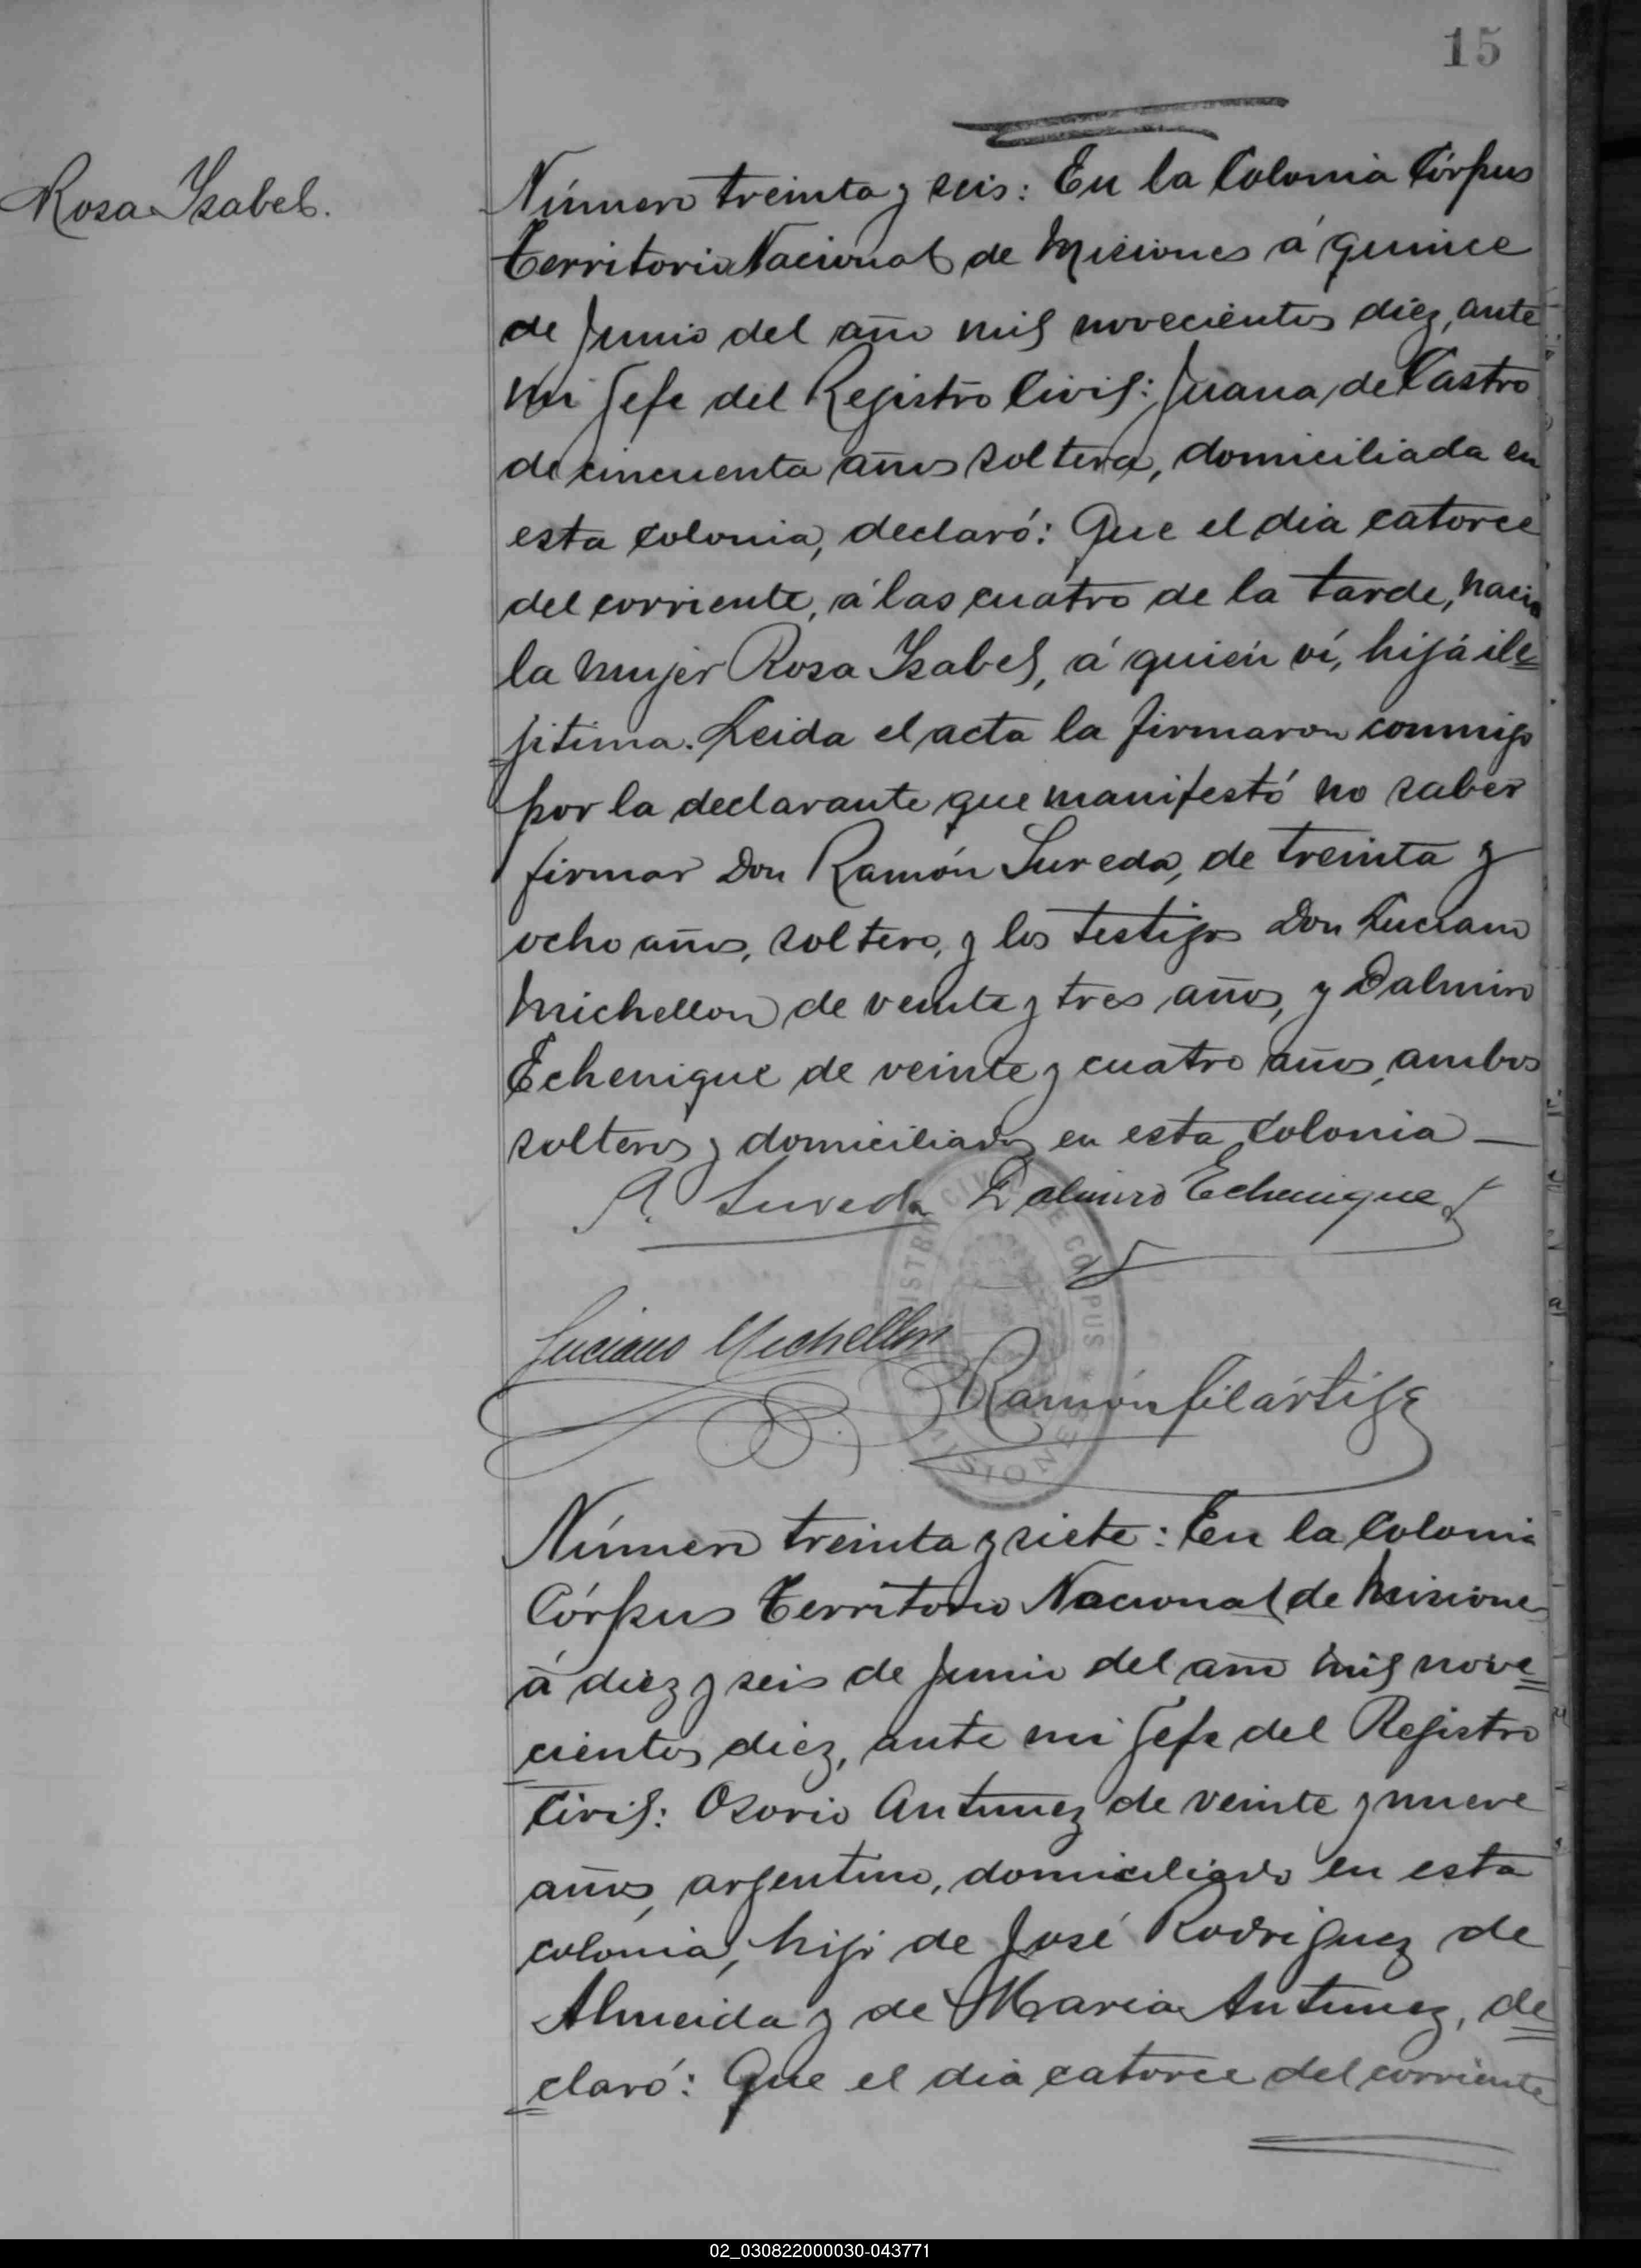 15
Rosa Ysabel.
Número treinta y seis: En la Colonia Córpus
Territorio Nacional de Misiones á quince
de Junio del año mil novecientos diéz, ante
mi Jefe del Registro Civil: Juana de Castro
de cincuenta años soltera, domiciliada en
esta colonia, declaró: Que el dia catorce
del corriente, á las cuatro de la tarde, nació
la mujer Rosa Ysabel, á quién ví, hija ile
gitima. Leida el acta la firmaron conmigo
por la declarante que manifestó no saber
firmar Don Ramón Sureda, de treinta y
ocho años, soltero, y los testigos Don Luciano
Michellon de veinte y tres años, y Dalmiro
Echenique de veinte y cuatro años, ambos
solteros y domiciliados en esta Colonia —
R. Sureda Dalmiro Echenique
REGISTRO CIVIL DE CORPUS * MISIONES
Luciano Michellon
Ramón Filártiga
Número treinta y siete: En la Colonia
Córpus Territorio Nacional de Misiones
á diez y seis de Junio del año mil nove
cientos diez, ante mi Jefe del Registro
Civil: Osorio Antunez de veinte y nueve
años, argentino, domiciliado en esta
colonia, hijo de José Rodriguez de
Almeida y de Maria Antunez, de
claró: Que el dia catorce del corriente
02_030822000030-043771